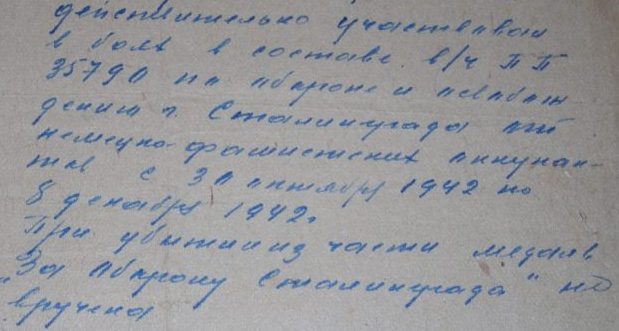 действительно участвовал
в боях в составе в/ч ПП
35790 по обороне и освобож
дении г. Сталинграда от
немецко-фашистских оккупан-
тов с 30 октября 1942 по
8 декабря 1942г
При убытии из части медаль
"За оборону Сталинграда" не
вручена